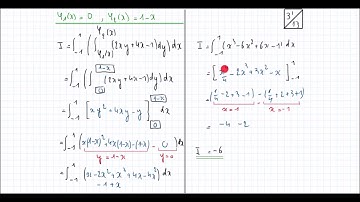 y₁(x) = 0 , y₂(x) = 1-x
I = ∫₋₁¹ ( ∫_{y₁(x)}^{y₂(x)} (2xy + 4x - 1) dy ) dx
= ∫₋₁¹ ( ∫₀^{1-x} (2xy + 4x - 1) dy ) dx
= ∫₋₁¹ [ xy² + 4xy - y ]₀^{1-x} dx
= ∫₋₁¹ (x(1-x)² + 4x(1-x) - (1-x) - 0) dx
y = 1-x y = 0
= ∫₋₁¹ (x - 2x² + x³ + 4x - 4x²
- 1 + x) dx
3'
I = ∫₋₁¹ (x³ - 6x² + 6x - 1) dx
= [ x⁴/4 - 2x³ + 3x² - x ]₋₁¹
= (1/4 - 2 + 3 - 1) - (1/4 + 2 + 3 + 1)
x = 1 x = -1
= -4 - 2
I = -6